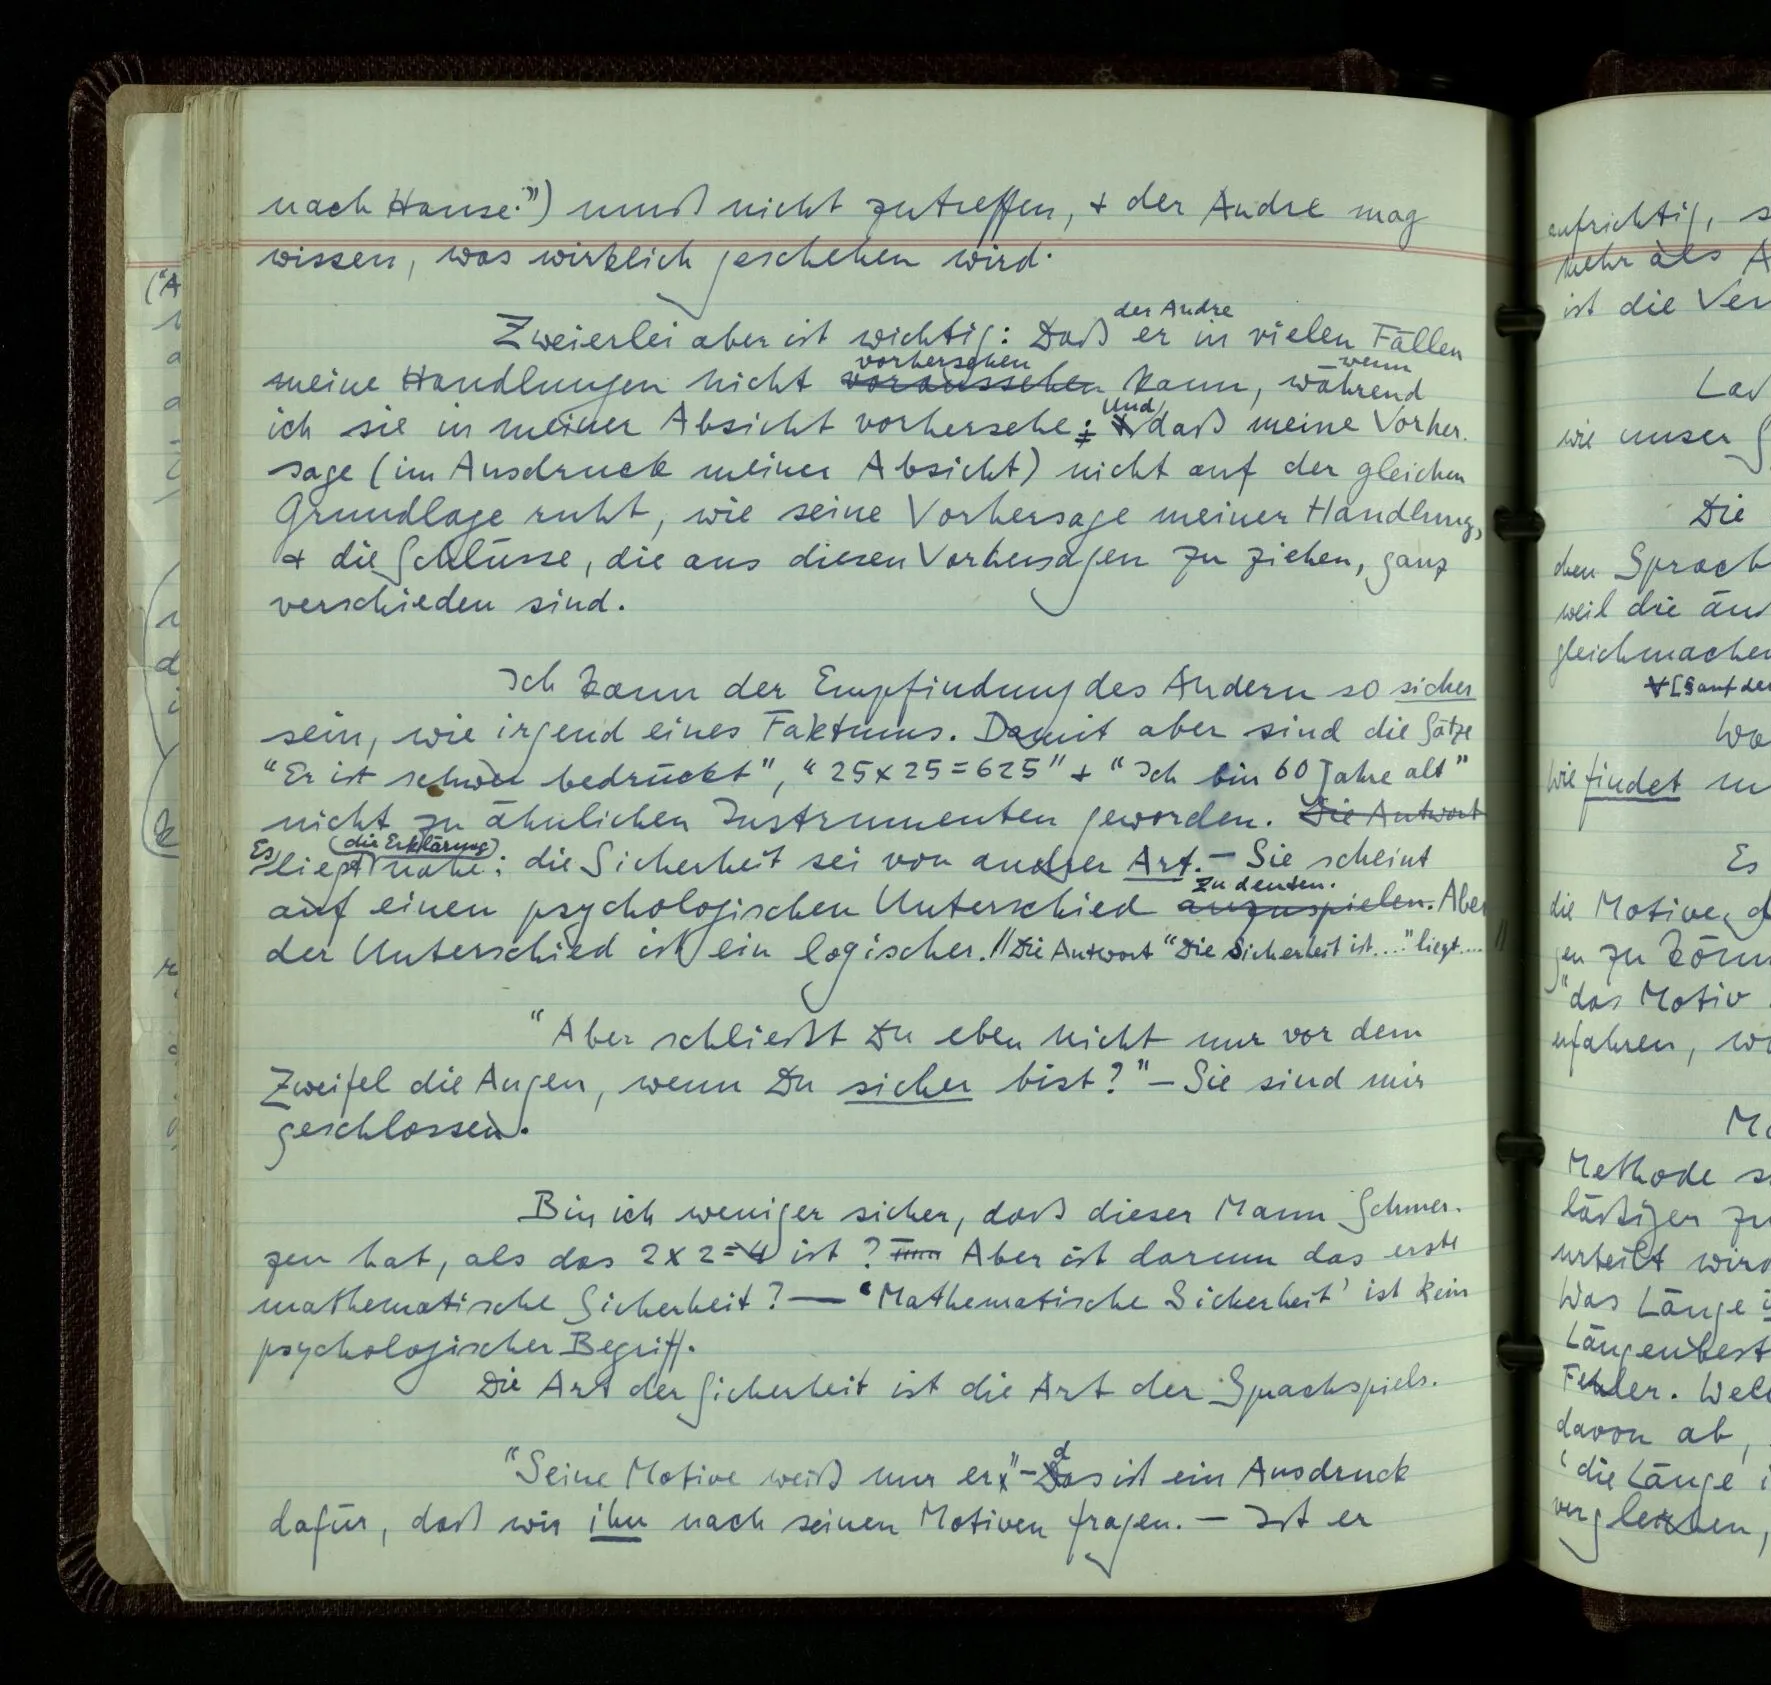 nach Hause.") muß nicht zutreffen, + der Andre mag
wissen, was wirklich geschehen wird.
Zweierlei aber ist wichtig: Daß er in vielen Fällen
der Andre
meine Handlungen nicht voraussehen kann, während
vorhersehen wenn
ich sie in meiner Absicht vorhersehe; + daß meine Vorher-
Und
sage (im Ausdruck meiner Absicht) nicht auf der gleichen
Grundlage ruht, wie seine Vorhersage meiner Handlung,
+ die Schlüsse, die aus diesen Vorhersagen zu ziehen, ganz
verschieden sind.
Ich kann der Empfindung des Andern so sicher
sein, wie irgend eines Faktums. Damit aber sind die Sätze
"Er ist schwer bedrückt", "25x25=625" + "Ich bin 60 Jahre alt"
nicht zu ähnlichen Instrumenten geworden. Die Antwort
Es liegt nahe: die Sicherheit sei von andrer Art. – Sie scheint
(die Erklärung)
auf einen psychologischen Unterschied anzuspielen. Aber
zu deuten.
der Unterschied ist ein logischer. // Die Antwort "Die Sicherheit ist...." liegt.... //
"Aber schließt Du eben nicht nur vor dem
Zweifel die Augen, wenn Du sicher bist?" – Sie sind mir
geschlossen.
Bin ich weniger sicher, daß dieser Mann Schmer-
zen hat, als das 2x2=4 ist? Aber ist darum das erste
mathematische Sicherheit? — 'Mathematische Sicherheit' ist kein
psychologischer Begriff.
Die Art der Sicherheit ist die Art der Sprachspiels.
"Seine Motive weiß nur er" – das ist ein Ausdruck
dafür, daß wir ihn nach seinen Motiven fragen. – Ist er
aufrichtig, s
mehr als A
ist die Ver
wie unser
Die
chen Sprach
weil die äu
gleichmachen
[§ auf der
wie findet
Es
die Motive
zu könn
"das Motiv
erfahren, wi
Methode s
läßiger zu
urteilt wird
Was Länge i
Längenbest
Fehler. Wel
davon ab,
'die Länge i
vergleichen,